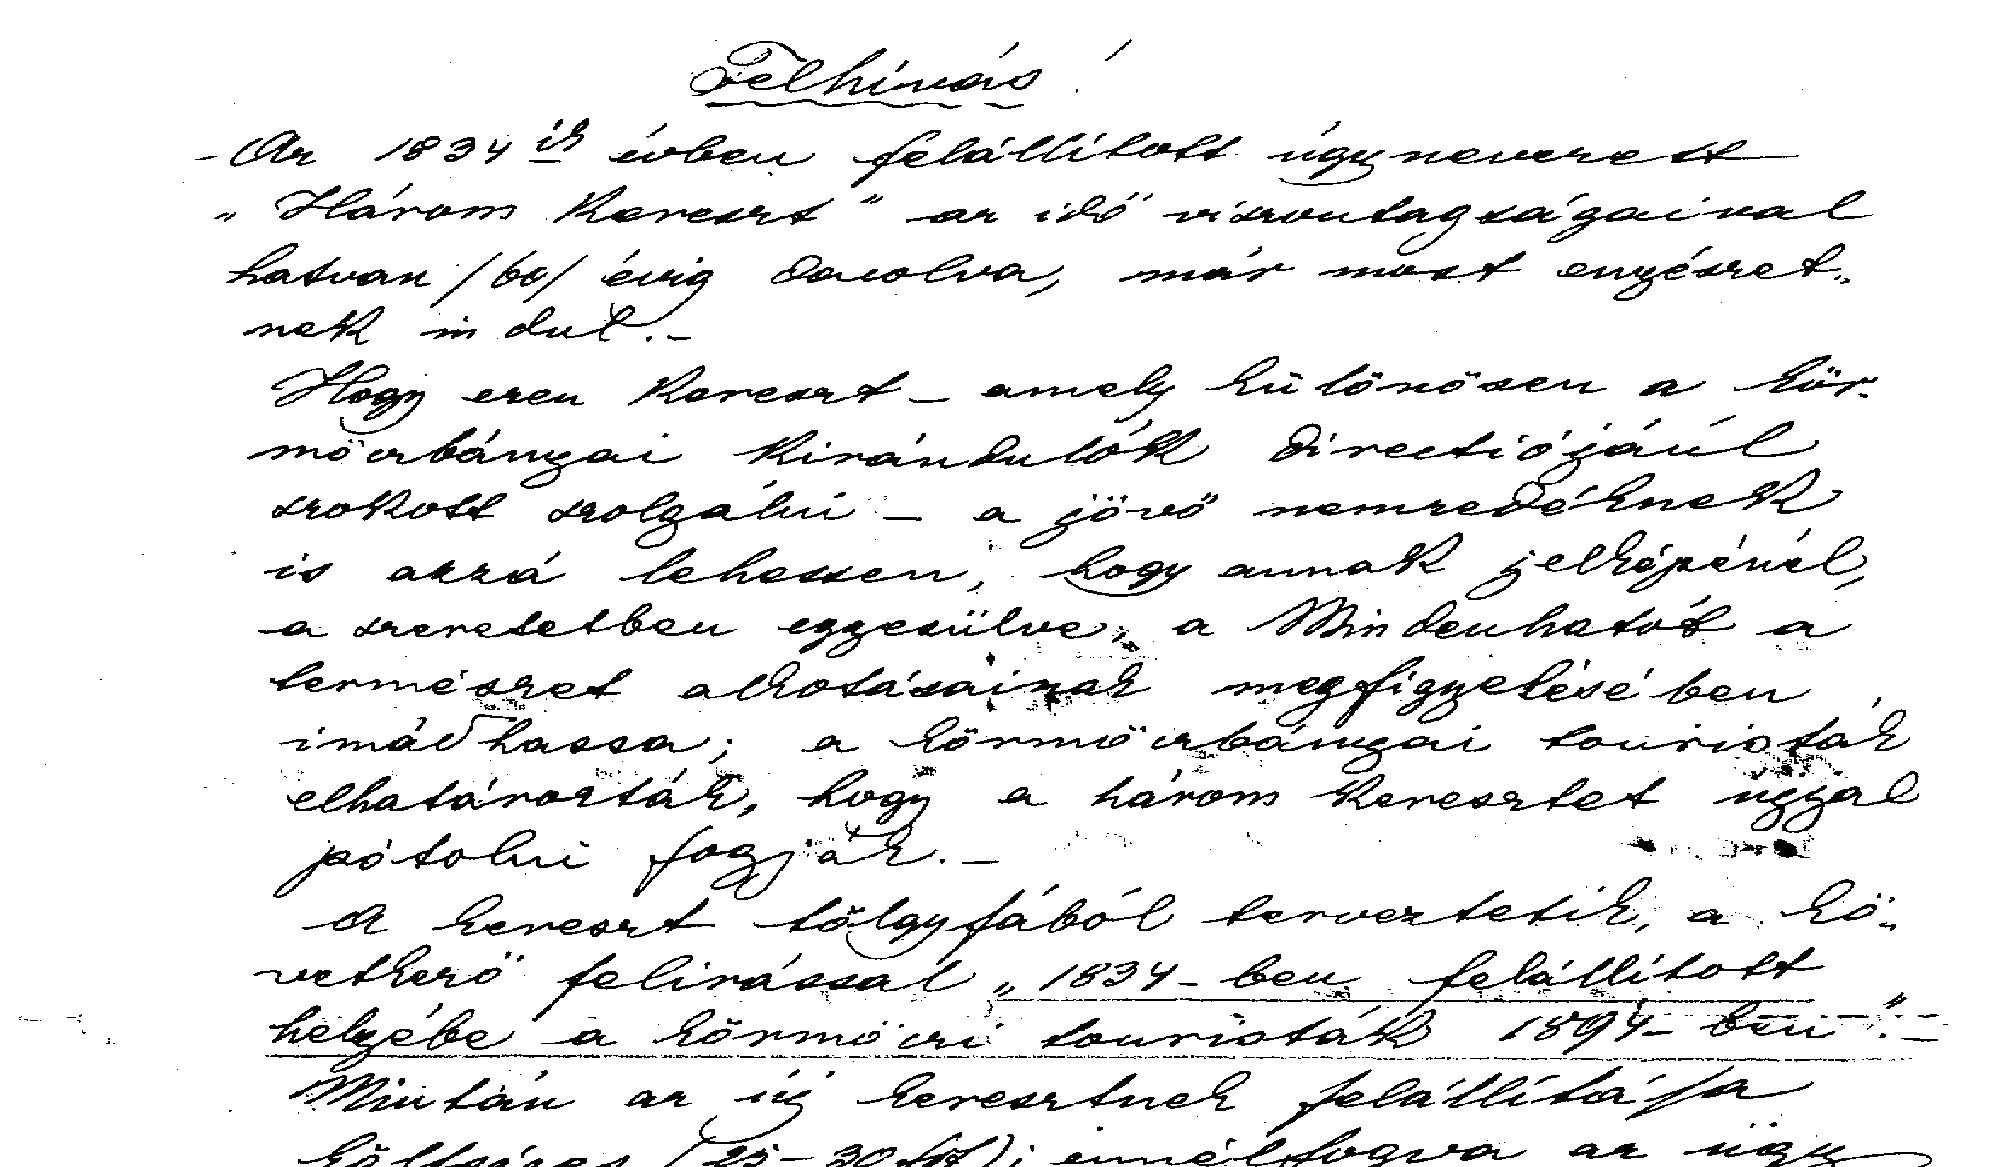 Felhívás!
- Az 1834 ik évben felállított úgynevezett
„Három Kereszt" az idő viszontagságaival
hatvan /60/ évig dacolva, már most enyészet-
nek indul.-
Hogy ezen Kereszt - amely különösen a kör-
möczbányai Kirándulók directiójául
szokott szolgálni - a jövő nemzedéknek
is azzá lehessen, hogy annak jelképénél,
a szeretetben egyesülve, a Mindenhatót a
természet alkotásainak megfigyelésében
imádhassa; a körmöczbányai touristák
elhatározták, hogy a három Keresztet
pótolni fogják.-
A kereszt tölgyfából terveztetik, a kö-
vetkező felirással „1834-ben felállított
helyébe a körmöczi touristák 1894-ben".-
Miután az új keresztnek felállítása
költséges (25-30 frt); ennélfogva az ügy